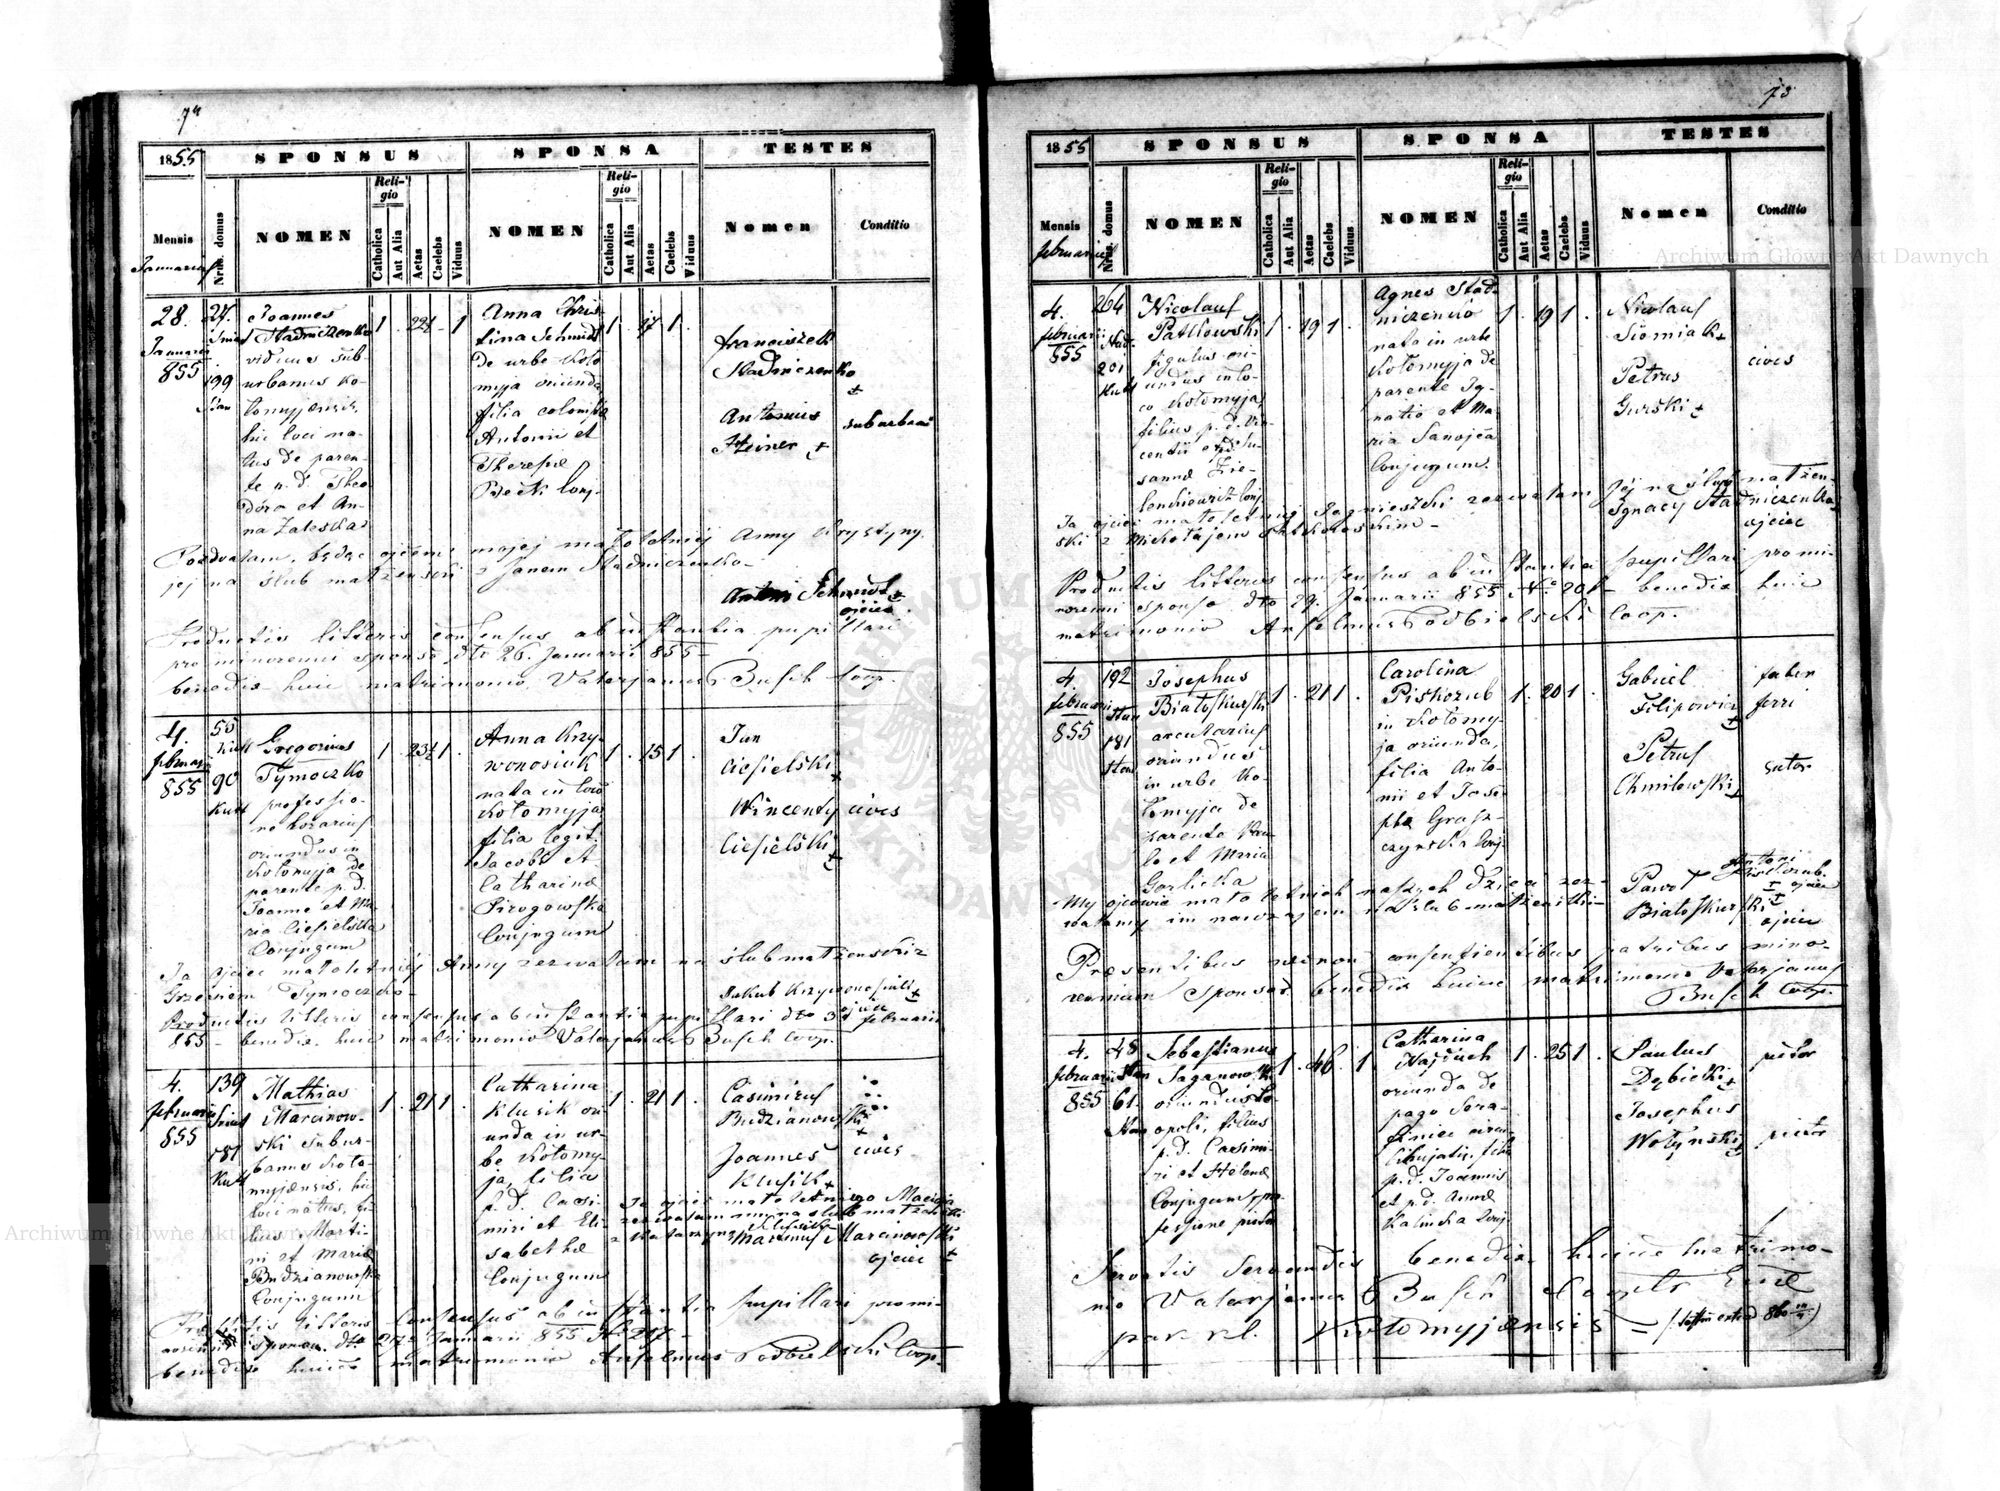 74
1855
SPONSUS
SPONSA
TESTES
Mensis
Januarius
Nrus. domus
NOMEN
Religio
Catholica
Aut Alia
Aetas
Caelebs
Viduus
NOMEN
Religio
Catholica
Aut Alia
Aetas
Caelebs
Viduus
Nomen
Conditio
28.
Januarii
855
27.
199
Joannes
Stadniczenko
viduus sub-
urbanus Ko-
lomyjensis,
hic loci na-
tus de paren-
te p. d. Theo
doro et An-
na Zaleska
1 . 22½ . 1
Anna Chris
tina Schmidt
de urbe Kolo
myja oriunda
filia
Antonii et
Theresiae
Beck conj.
1 . 17 1 .
Franciszek
Stadniczenko
+
Antonius
Steiner +
suburbani
Pozwalam, będąc ojcem mojej małoletniej Anny Krystyny
jej na ślub małżeński z Janem Stadniczenko
Antoni Schmidt +
ojciec.
Productis litteris consensus ab instantia pupillari
pro minorenni sponsa dto 26. Januarii 855 –
benedix. huic matrimonio. Valerjanus Busch Coop.
4.
februarii
855
55
Kutt
90
Kutt
Gregorius
Tymoczko
professio-
ne
oriundus in
Kolomyja de
parente p. d.
Joanne et Ma
ria Ciesielska
Conjugum
1 . 23½ 1 .
Anna Krzy-
wonosiuk
nata in loco
Kolomyja
filia legit.
Jacobi et
Catharinae
Pirogowska
Conjugum
1 . 15 1 .
Jan
Ciesielski
+
Wincenty
Ciesielski
+
cives
Ja ojciec małoletniej Anny zezwalam na ślub małżeński z
Grzesiem Tymoczko –
Jakub Krzywonosiuk +
ojciec
Productis litteris consensus ab instantia pupillari dto 3 februarii
855 – benedix. huic matrimonio Valerjanus Busch Coop.
4.
februarii
855
139
181
Kutt
Mathias
Marcinow-
ski subur-
banus Kolo-
myjensis, hic
loci natus, fi-
lius Marti-
ni et Mariae
Budzianowska
Conjugum
1 . 21 1 .
Catharina
Klusik ori
unda in ur-
be Kolomy-
ja, filia
p. d. Casi-
miri et Eli-
sabethae
Conjugum
1 . 21 1 .
Casimirus
Budzianowski
+
Joannes
Klusik +
cives
Ja ojciec małoletniego Macieja
zezwalam mu na ślub małżeński
z Katarzyną Klusik
Martinus Marcinowski
ojciec +
Productis litteris consensus ab instantia pupillari pro mi-
norenni sponso dto 27. Januarii 855 No 217 –
benedix huic matrimonio Anselmus Podbielski Coop.
75
1855
SPONSUS
SPONSA
TESTES
Mensis
februarius
Nrus. domus
NOMEN
Religio
Catholica
Aut Alia
Aetas
Caelebs
Viduus
NOMEN
Religio
Catholica
Aut Alia
Aetas
Caelebs
Viduus
Nomen
Conditio
4.
februarii
855
264
201
Kutt
Nicolaus
Patkowski
figulus ori-
undus in lo-
co Kolomyja
filius p. d. Vin
centii et p. d. Su-
sannae Zie-
lenkiewicz conj.
1 . 19 1 .
Agnes Stad-
niczenko
nata in urbe
Kolomyja de
parente Ig-
natio et Ma-
ria Sanojca
Conjugum.
1 . 19 1 .
Nicolaus
Siomiak
+
Petrus
Gurski +
cives
Ja ojciec małoletniej Jagnieszki zezwalam Jej na ślub małżeń-
ski z Mikołajem Patkowskim –
Ignacy Stadniczenko
ojciec
Productis litteris consensus ab instantia pupillari pro mi-
norenni sponsa dto 29. Januarii 855 No 208 – benedix huic
matrimonio Anselmus Podbielski Coop.
4.
februarii
855
192
181
Josephus
Białoskurski
arcularius
oriundus
in urbe Ko-
lomyja de
parente Pau-
lo et Maria
Gorlicka
1 . 21 1 .
Carolina
Piskozub
in Kolomy-
ja oriunda,
filia Anto-
nii et Jose-
phae Grasz-
czynska conj.
1 . 20 1 .
Gabriel
Filipowicz
+
Petrus
Chmilowski
+
faber
ferri
sutor
My ojcowie małoletnich naszych dzieci zez-
walamy im nawzajem na ślub małżeński –
Antoni
Piskozub.
+ ojciec
Paweł
Białoskurski +
ojciec
Praesentibus nec non consentientibus patribus mino-
rennium sponsor. benedix huic matrimonio Valerjanus
Busch Coop.
4.
februarii
855
48
61.
Sebastianus
Saganowski
oriundus
opoli, filius
p. d. Casimi-
ri et Helenae
Conjugum, pro-
fessione
1 . 46 . 1
Catharina
Wojciech
oriunda de
pago Sera-
finiec circu-
li
p. d. Joannis
et p. d. Annae
Kalinska conj.
1 . 25 1 .
Paulus
Dębicki
+
Josephus
Wołynski
+
pictor
Servatis Servandis benedix. huic matrimo-
nio Valerjanus Busch
par. r. l. Kolomyjensis
Archiwum Główne Akt Dawnych
Archiwum Główne Akt Dawnych
ARCHIWUM GŁÓWNE AKT DAWNYCH